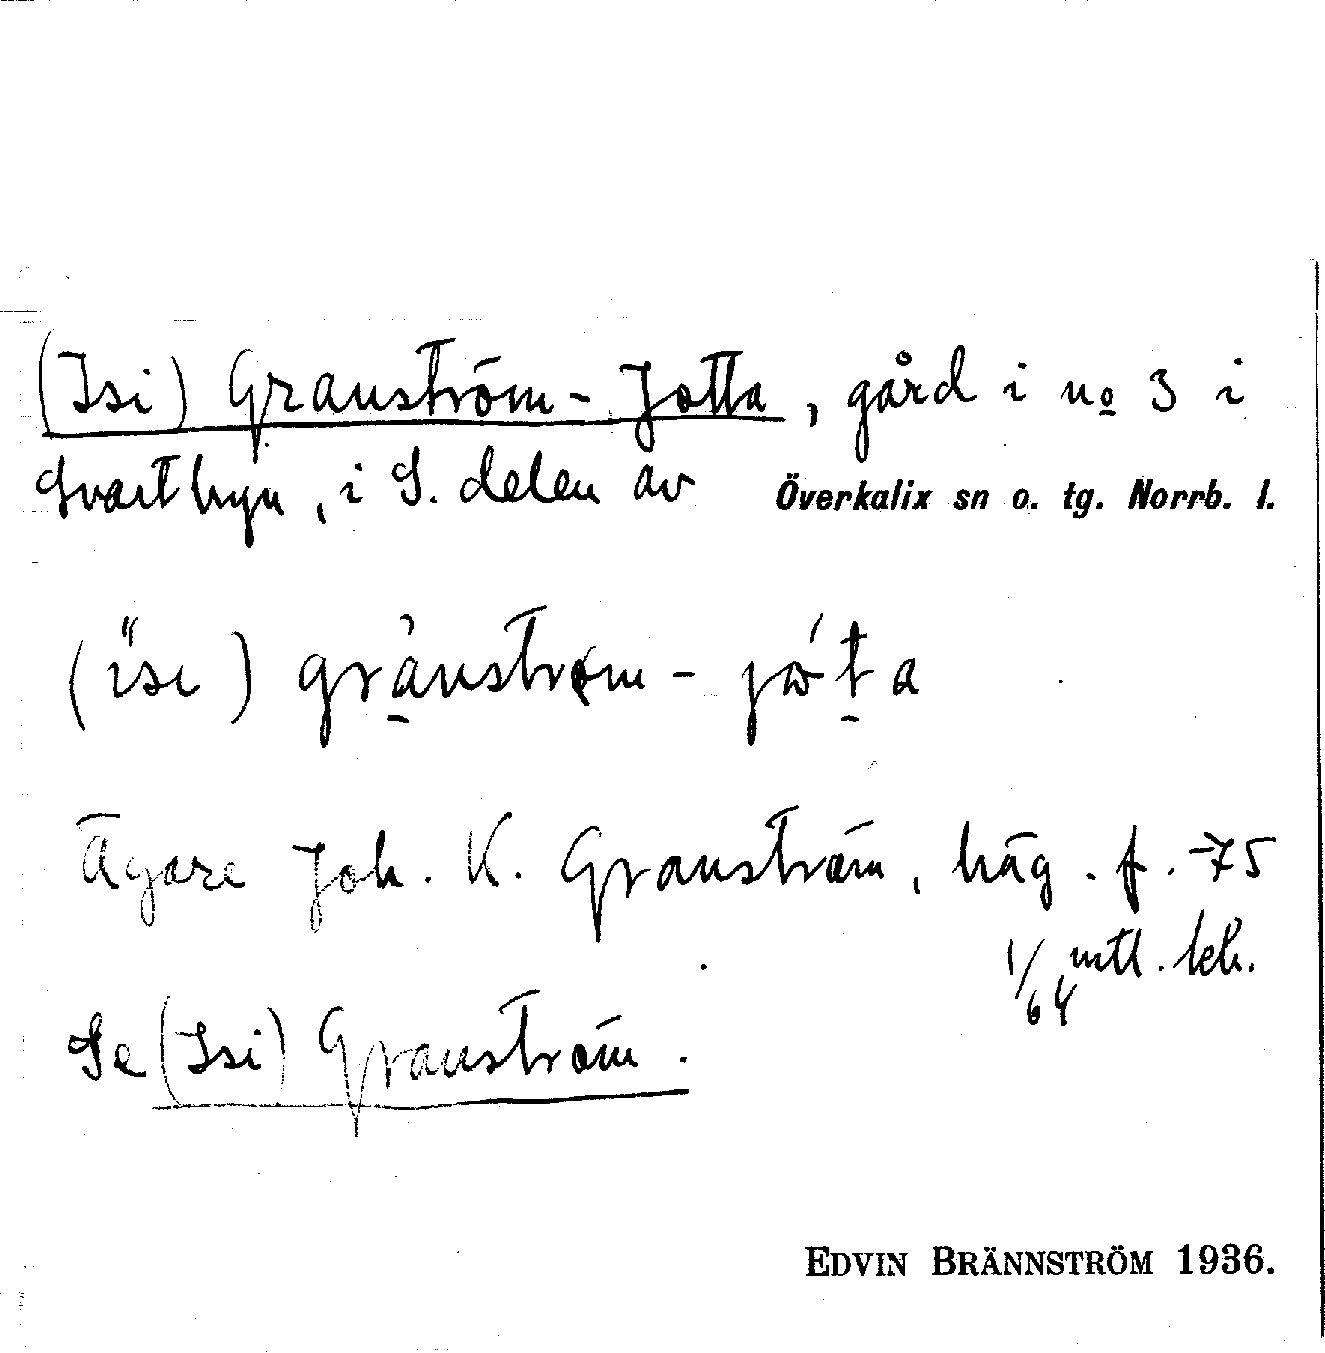 (Isi) Granström-Jotta, gård i no 3 i
Svartbyn, i S. delen av Överkalix sn o. tg. Norrb. l.
Ägare Joh. K. Granström, häg. f. -75
1/64 mtl. kh.
Se (Isi) Granström.
EDVIN BRÄNNSTRÖM 1936.